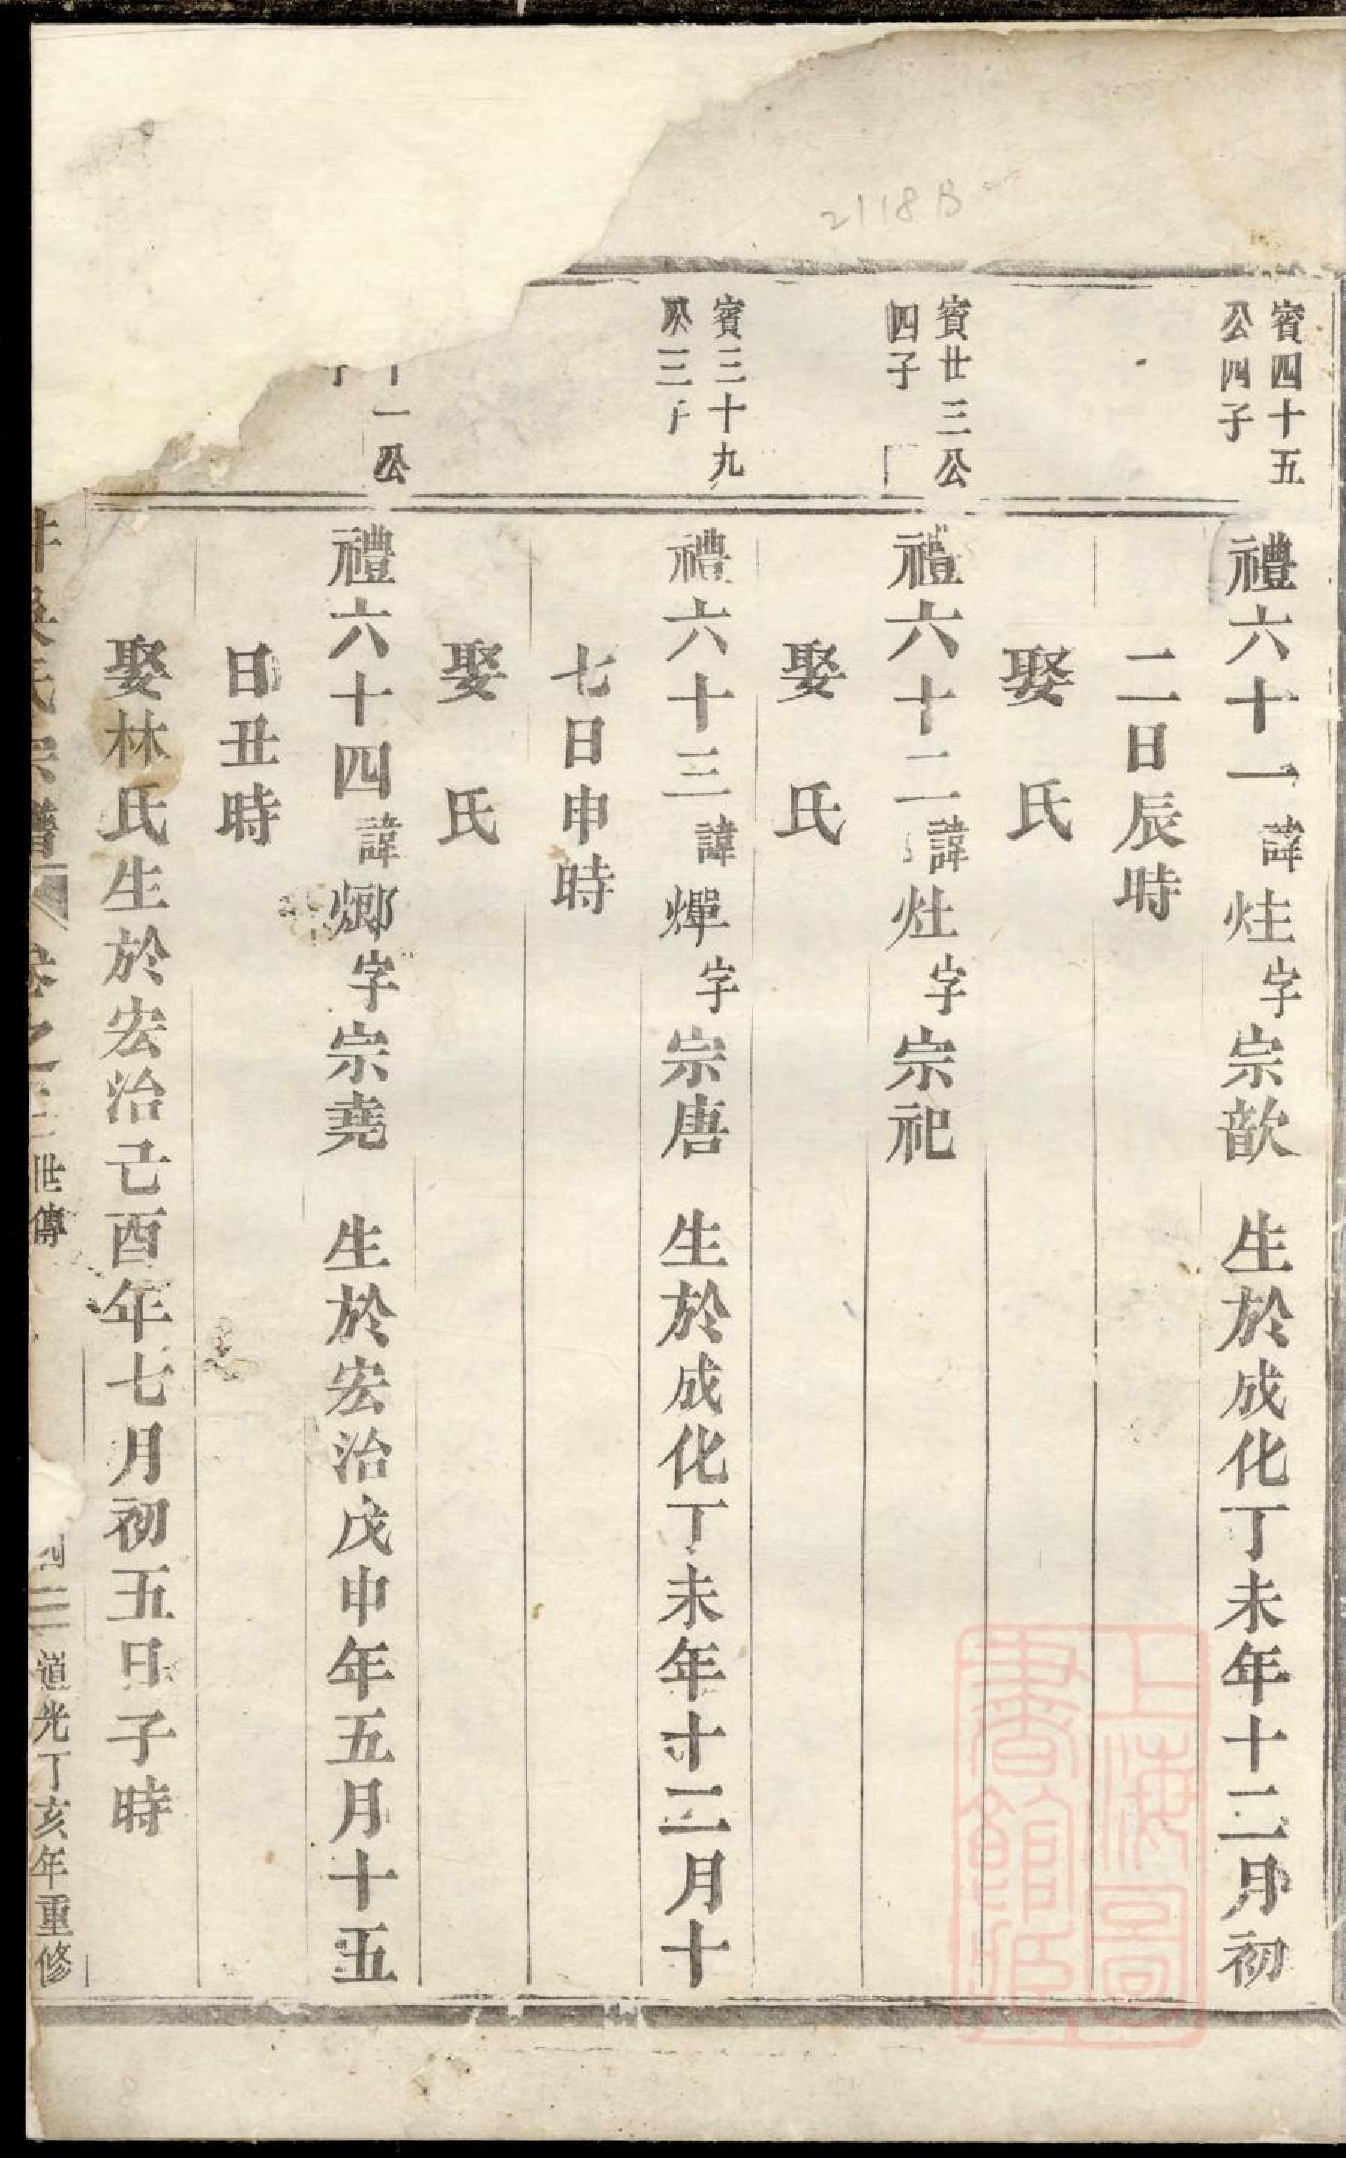 2118B
賓四十五
公四子
禮六十一諱炷字宗歆 生於成化丁未年十二月初
二日辰時
娶 氏
賓廿三公
四子
禮六十二諱灶字宗祀
娶 氏
賓三十九
公三子
禮六十三諱燀字宗唐 生於成化丁未年十二月十
七日申時
娶 氏
十一公
禮六十四諱字宗堯 生於宏治戊申年五月十五
日丑時
娶林氏生於宏治己酉年七月初五日子時
氏宗譜 卷之三世傳
道光丁亥年重修
上海圖
書館藏